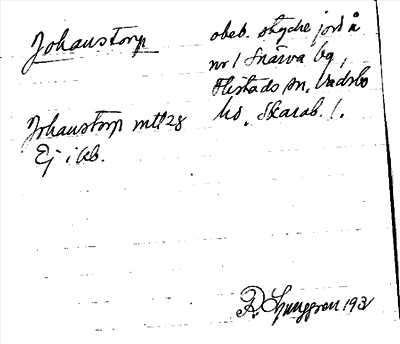 Johanstorp
obeb. stycke jord å
nr 1 Snärva by,
Flistads sn, Vadsbo
hd. Skarab. l.
Johanstorp mtl 28
Ej i kb.
R. Ljunggren 1931